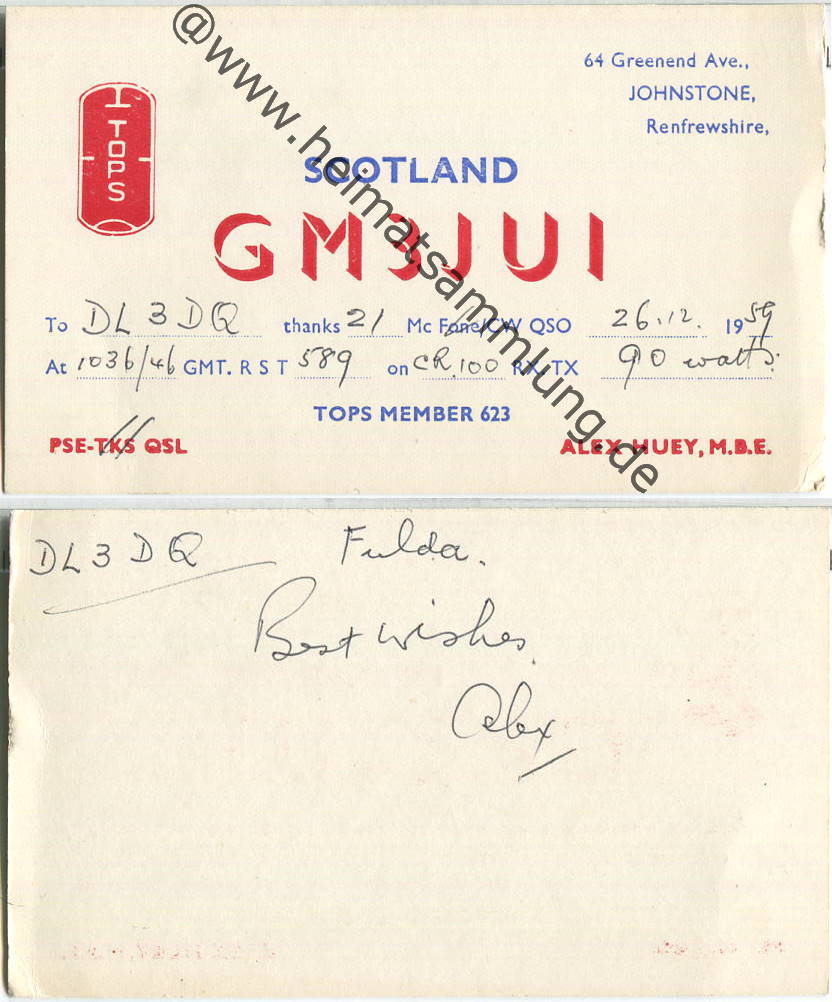 64 Greenend Ave.,
JOHNSTONE,
Renfrewshire,
I TOPS
SCOTLAND
GM3JUI
To DL3DQ thanks 21 Mc Fone/CW QSO 26.12. 1959
At 1036/46 GMT. R S T 589 on CR.100 RX. TX 90 watts.
TOPS MEMBER 623
PSE-TKS QSL ALEX HUEY, M.B.E.
@www.heimatsammlung.de
DL3DQ Fulda.
Best wishes.
Alex